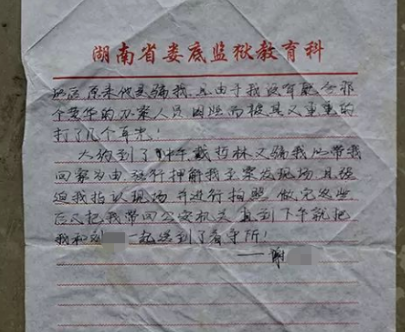 湖南省娄底监狱教育科
把后原来他是骗我,且由于我没有配合那
个黄华的办案人员因照而被其又重重的
打了几个耳光!
大约到了中午戴哲林又骗我以带我
回家为由强行押解我去案发现场,且强
迫我指认现场并进行拍照,做完这些
后又把我带回公安机关,直到下午就把
我和刘 一起送到了看守所!
——谢